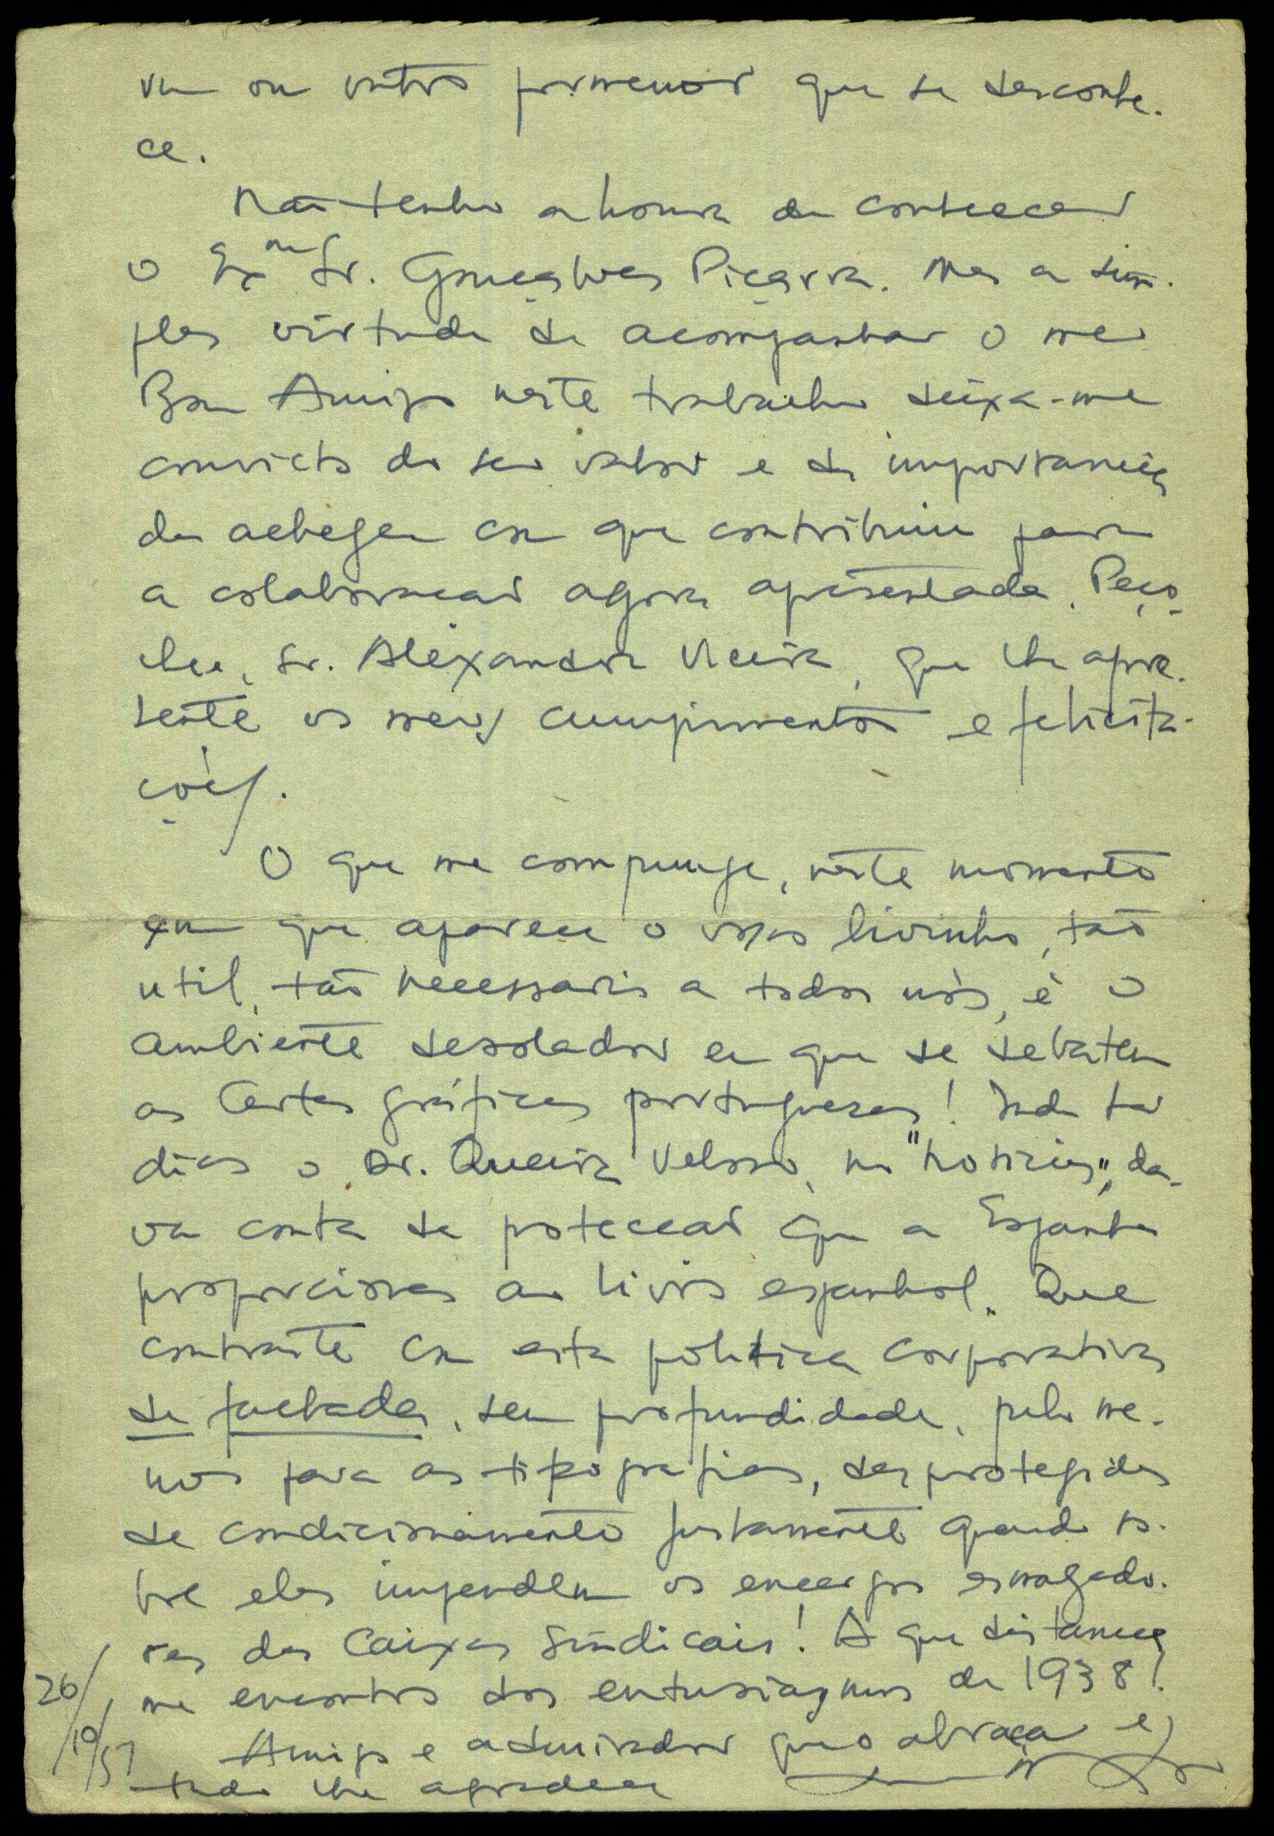 um ou outro pormenor que se desconhe-
ce.
Não tenho a honra de conhecer
o Exmo Sr. Gonçalves Piçarra. Mas a sim-
ples virtude de acompanhar o meu
Bom Amigo neste trabalho deixa-me
convicto do seu valor e da importancia
da achega com que contribuiu para
a colaboração agora apresentada. Peço-
lhe, Sr. Alexandre Vieira, que lhe apre-
sente os meus cumprimentos e felicita-
ções.
O que me compunge, neste momento
em que aparece o vosso livrinho, tão
util, tão necessario a todos nós, é o
ambiente desolador em que se debatem
as Artes gráficas portuguesas! Inda há
dias o Dr. Queiroz Veloso, no "Noticias", da-
va conta da proteccão que a Espanha
proporciona ao livro espanhol. Que
contraste com esta politica corporativa
de fachada, sem profundidade, pelo me-
nos para as tipografias, desprotegidas
de condicionamento justamente quando so-
bre elas impendem os encargos esmagado-
res das Caixas Sindicais! A que distancia
me encontro dos entusiasmos de 1938!
Amigo e admirador que o abraça e
tudo lhe agradece
26/10/57